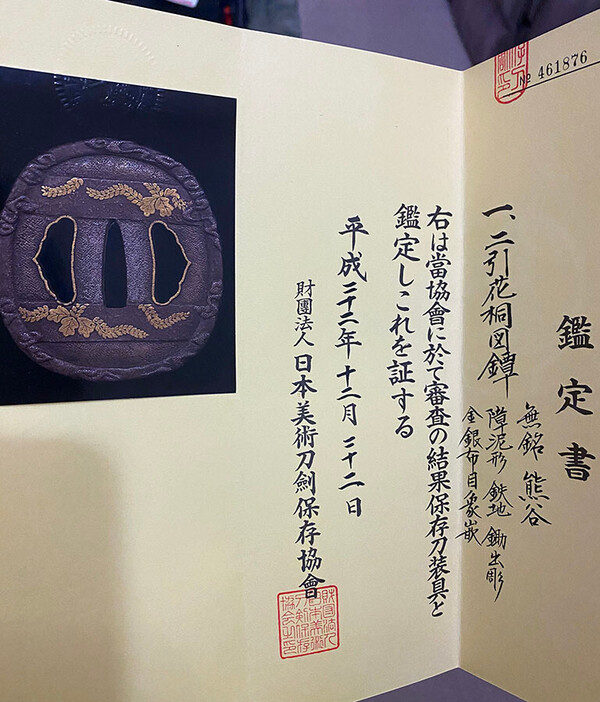 № 461876
鑑定書
一、二引花桐図鐔
無銘 熊谷
障泥形 鉄地 鋤出彫
金銀布目象嵌
右は當協會に於て審査の結果保存刀装具と
鑑定しこれを証する
平成二十二年十二月二十二日
財團法人 日本美術刀劍保存協會